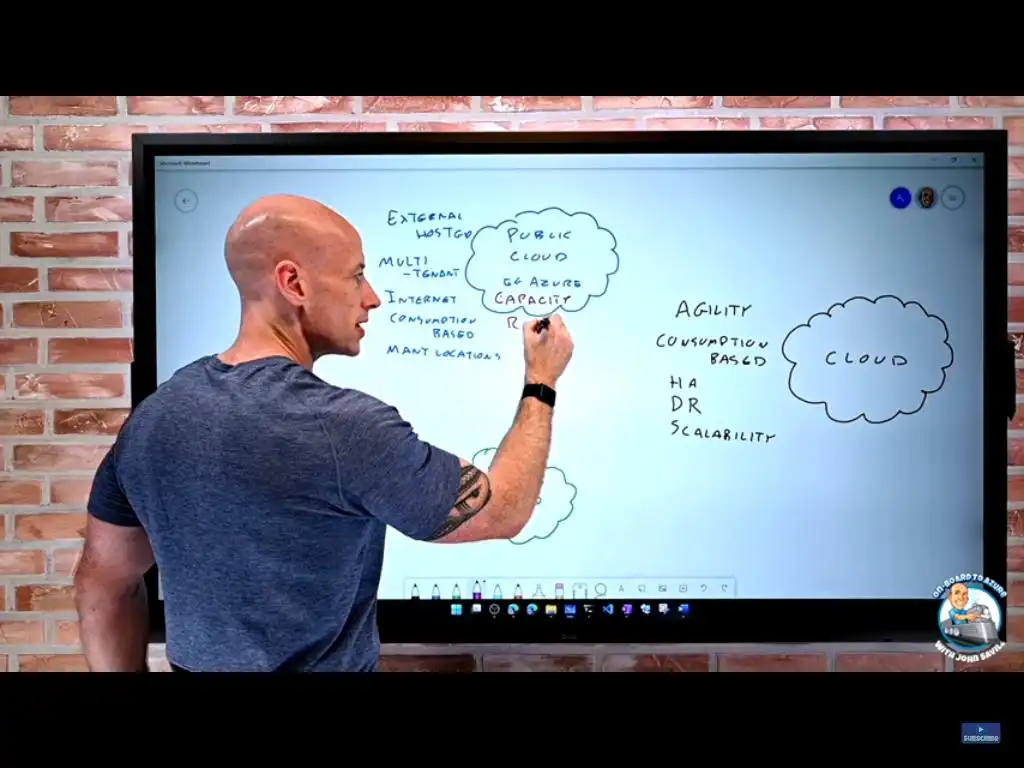 Microsoft Whiteboard
EXTERNAL
HOSTED
MULTI
-TENANT
INTERNET
CONSUMPTION
BASED
MANY LOCATIONS
PUBLIC
CLOUD
EG AZURE
CAPACITY
R
AGILITY
CONSUMPTION
BASED
HA
DR
SCALABILITY
CLOUD
ON-BOARD TO AZURE
WITH JOHN SAVILL
SUBSCRIBE